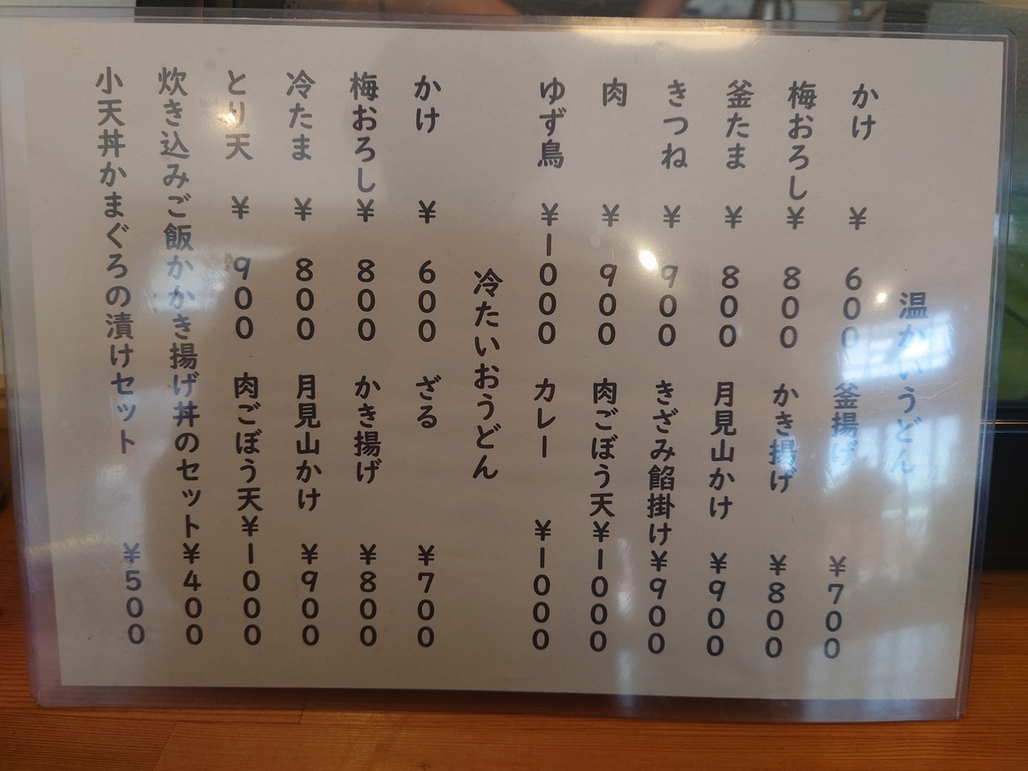 温かいうどん
かけ ¥ 600 釜揚げ ¥700
梅おろし¥ 800 かき揚げ ¥800
釜たま ¥ 800 月見山かけ ¥900
きつね ¥ 900 きざみ餡掛け¥900
肉 ¥ 900 肉ごぼう天¥1000
ゆず鳥 ¥1000 カレー ¥1000
冷たいおうどん
かけ ¥ 600 ざる ¥700
梅おろし¥ 800 かき揚げ ¥800
冷たま ¥ 800 月見山かけ ¥900
とり天 ¥ 900 肉ごぼう天¥1000
炊き込みご飯かかき揚げ丼のセット¥400
小天丼かまぐろの漬けセット ¥500